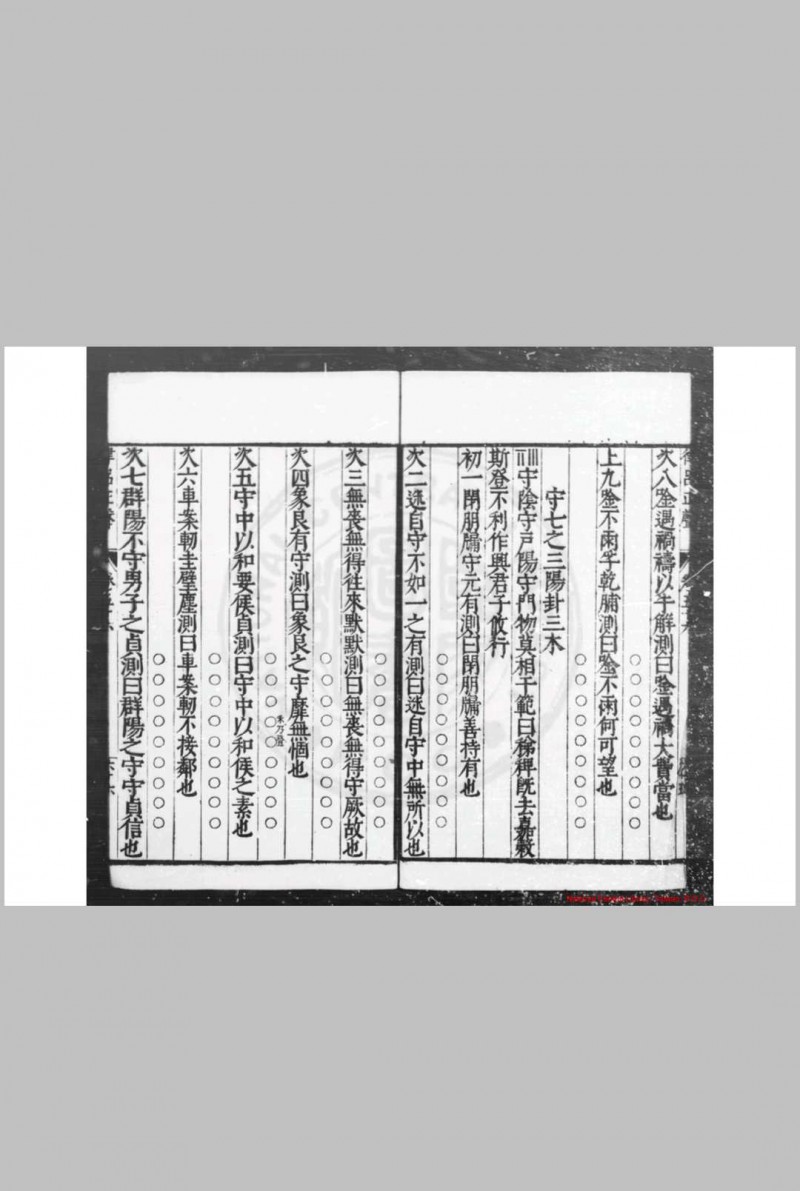 次八唫遇禍禱以牛解測曰唫遇禍大費當也
○○○○○○○
上九唫不雨孚乾脯測曰唫不雨何可望也
○○○○○○○
守七之三陽卦三木
守陰守戸陽守門物莫相干範曰稊稗旣去嘉穀
斯登不利作興君子攸行
初一閉朋牖守元有測曰閉朋牖善持有也
○○○○○○○
次二迷自守不如一之有測曰迷自守中無所以也
○○○○○○○
次三無喪無得往來默默測曰無喪無得守厥故也
○○○○○○○
次四象艮有守測曰象艮之守靡無悁也
○○○○○○○
次五守中以和要侯貞測曰守中以和侯之素也
○○○○○○○
次六車案軔圭璧塵測曰車案軔不接鄰也
○○○○○○○
次七群陽不守男子之貞測曰群陽之守守貞信也